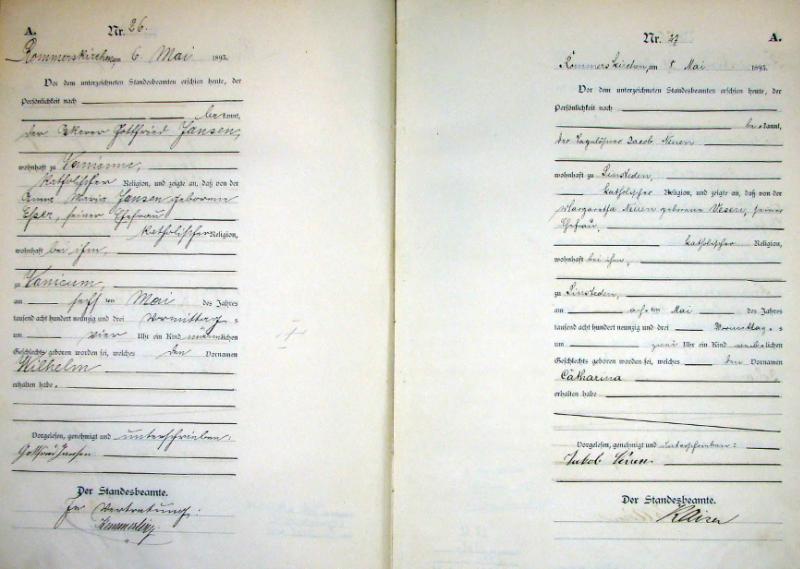 A.
Nr. 26.
Rommerskirchen, am 6. Mai 1893.
Vor dem unterzeichneten Standesbeamten erschien heute, der
Persönlichkeit nach
bekannt,
der Ackerer Gottfried Jansen,
wohnhaft zu Vanicum,
katholischer Religion, und zeigte an, daß von der
Anna Maria Jansen geborenen
Esser, seiner Ehefrau
katholischer Religion,
wohnhaft bei ihm,
zu Vanicum,
am sechsten Mai des Jahres
tausend acht hundert neunzig und drei Vormittags
um vier Uhr ein Kind männlichen
Geschlechts geboren worden sei, welches den Vornamen
Wilhelm
erhalten habe.
Vorgelesen, genehmigt und unterschrieben:
Gottfried Jansen
Der Standesbeamte.
In Vertretung:
Nr. 27
A.
Rommerskirchen, am 8. Mai 1893.
Vor dem unterzeichneten Standesbeamten erschien heute, der
Persönlichkeit nach
bekannt,
der Tagelöhner Jacob Neuen
wohnhaft zu Sinsteden,
katholischer Religion, und zeigte an, daß von der
Margaretha Neuen geborene seiner
Ehefrau,
katholischer Religion,
wohnhaft bei ihm,
zu Sinsteden,
am achten Mai des Jahres
tausend acht hundert neunzig und drei Vormittags
um Uhr ein Kind weiblichen
Geschlechts geboren worden sei, welches den Vornamen
Catharina
erhalten habe
Vorgelesen, genehmigt und unterschrieben:
Jakob Neuen
Der Standesbeamte.
Kaiser